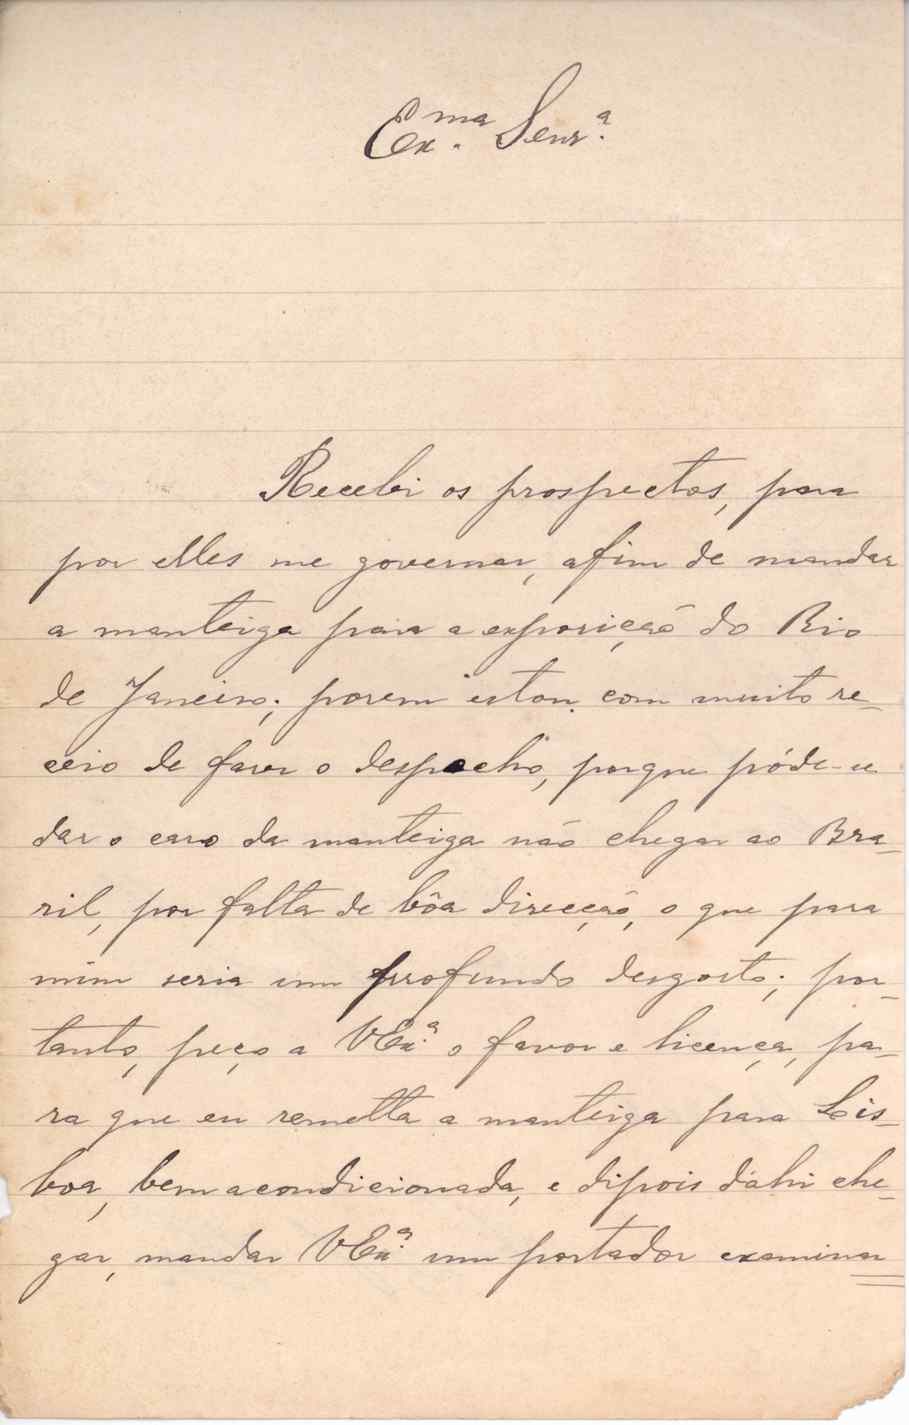 Ex.ma Senr.a
Recebi os prospectos, para
por elles me governar, afim de mandar
a manteiga para a exposição do Rio
de Janeiro; porem estou com muito re-
ceio de fazer o despacho, porque póde-se
dar o caso da manteiga não chegar ao Bra-
zil, por falta de bôa direcção, o que para
mim seria um profundo desgosto; por-
tanto, peço a VEx.a o favor e licença, pa-
ra que eu remetta a manteiga para Lis-
boa, bem acondicionada, e dipois d'ahi che-
gar, mandar VEx.a um portador examinar